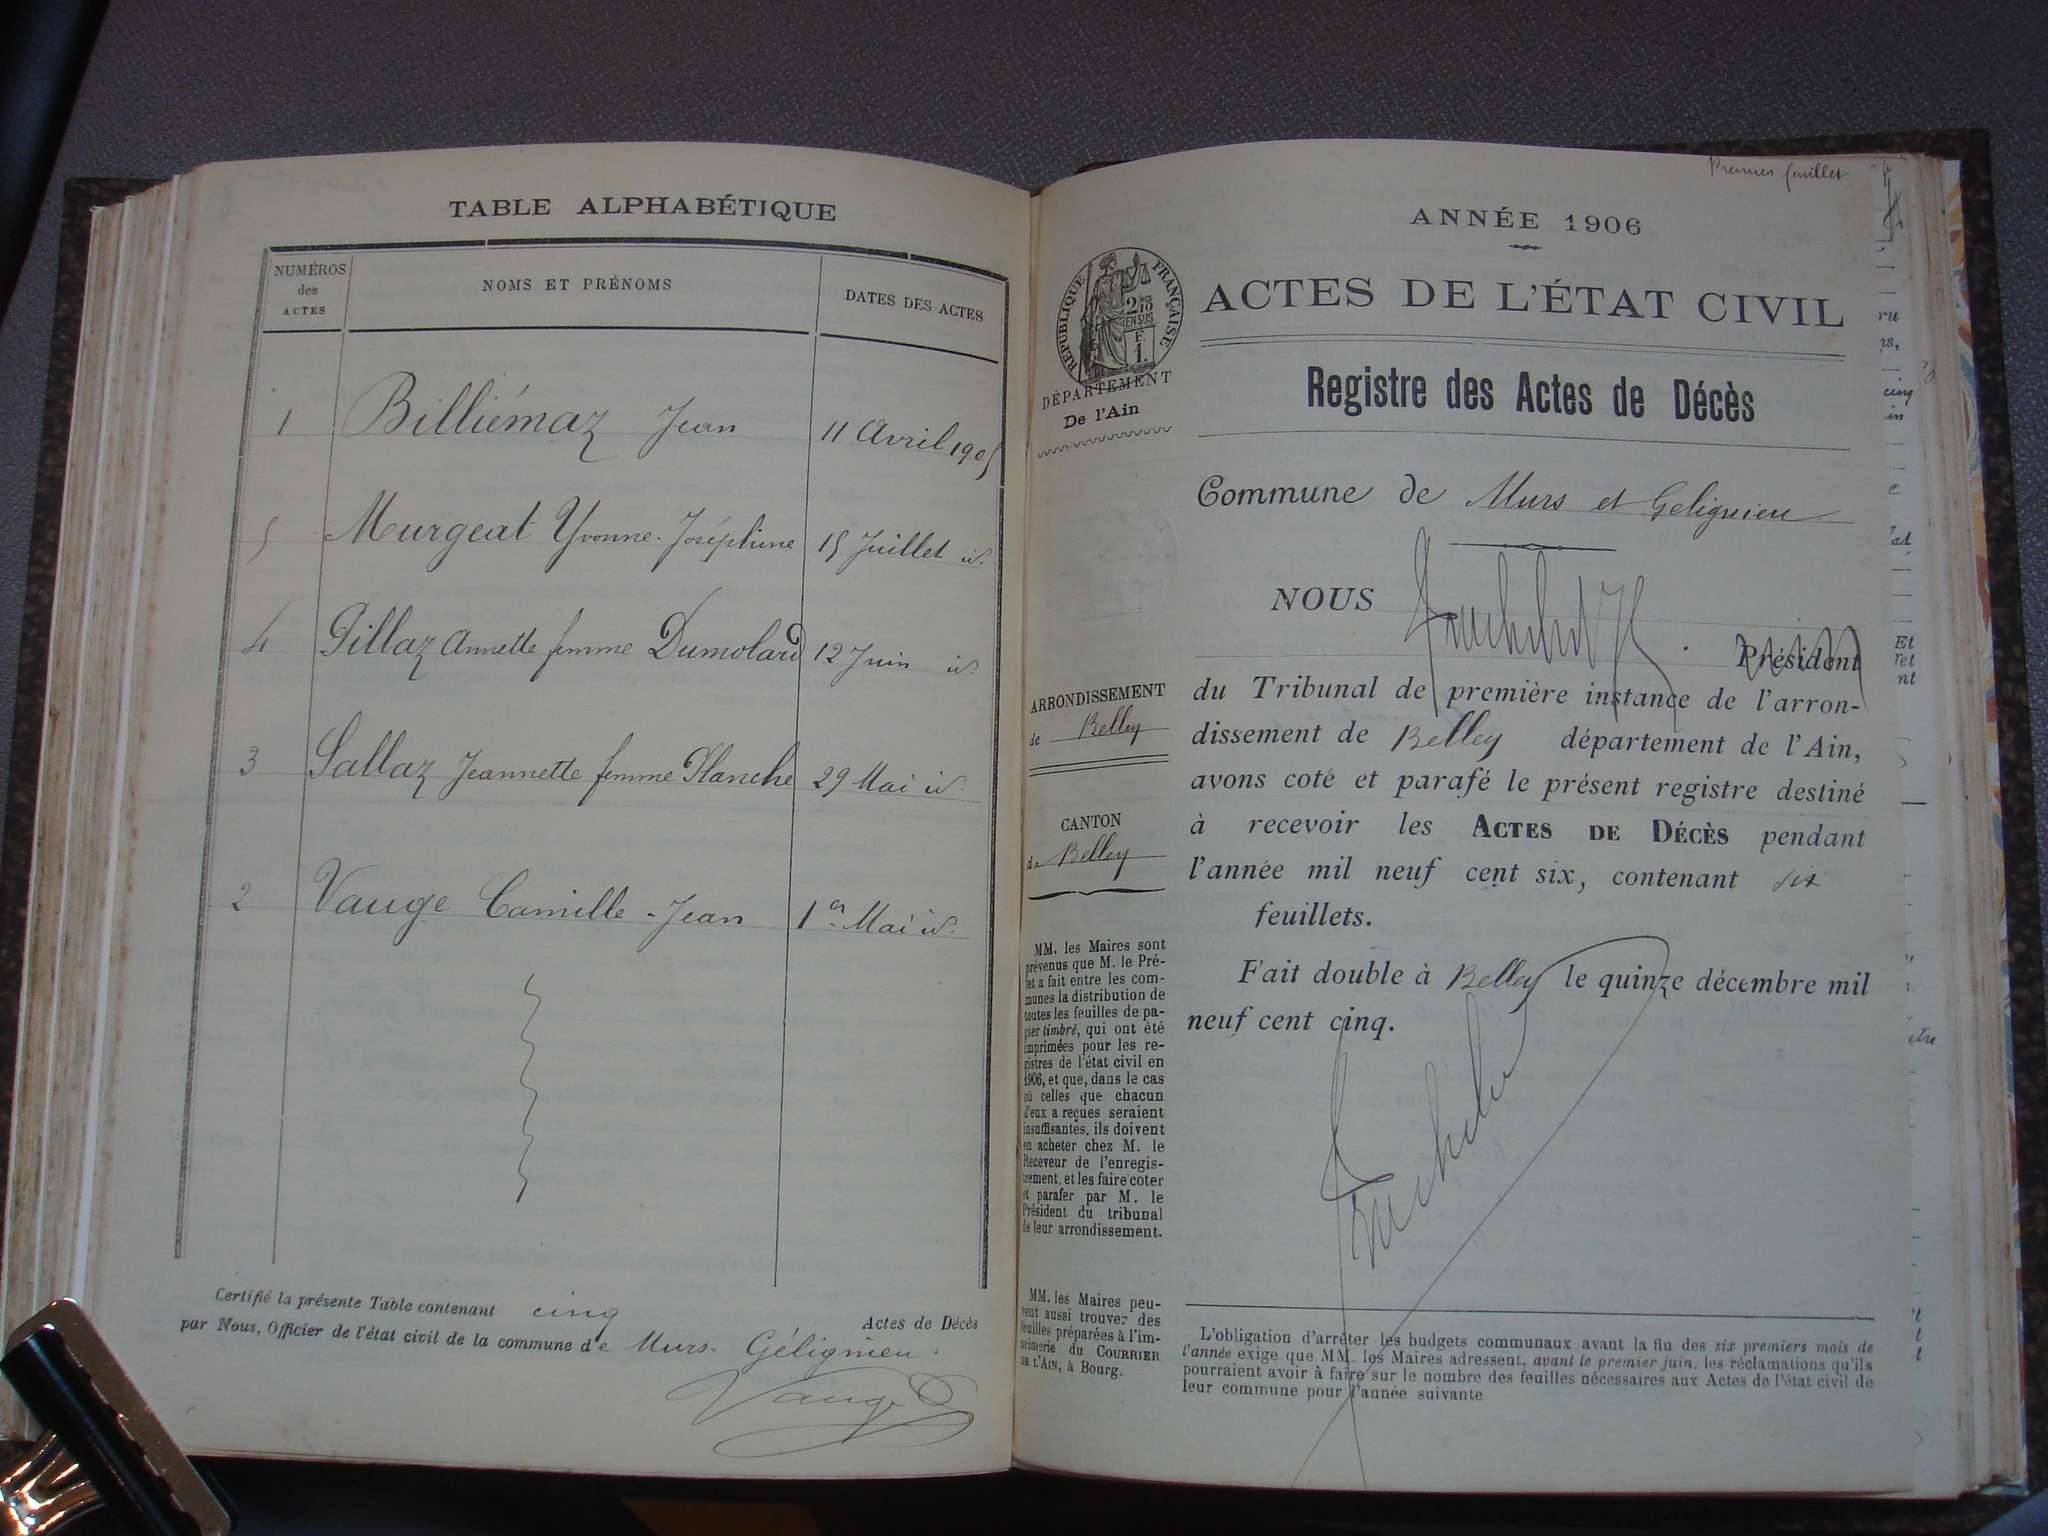 TABLE ALPHABÉTIQUE
NUMÉROS
des
ACTES
NOMS ET PRÉNOMS
DATES DES ACTES
1 Billiémaz Jean 11 Avril 1905
5 Murgeat Yvonne-Joséphine 15 Juillet id.
4 Pillaz Annette femme Dumolard 12 Juin id.
3 Sallaz Jeannette femme Planche 29 Mai id.
2 Vauge Camille-Jean 1er Mai id.
Certifié la présente Table contenant cinq Actes de Décès
par Nous, Officier de l'état civil de la commune de Murs-Gélignieu.
Vauge
Premier feuillet
ANNÉE 1906
RÉPUBLIQUE FRANÇAISE
2/10
EN SUS
F.
1.
DÉPARTEMENT
De l'Ain
ACTES DE L'ÉTAT CIVIL
Registre des Actes de Décès
Commune de Murs et Gelignieu
NOUS
Président
du Tribunal de première instance de l'arron-
dissement de Belley département de l'Ain,
avons coté et parafé le présent registre destiné
à recevoir les ACTES DE DÉCÈS pendant
l'année mil neuf cent six, contenant six
feuillets.
Fait double à Belley le quinze décembre mil
neuf cent cinq.
ARRONDISSEMENT
de Belley
CANTON
de Belley
MM. les Maires sont
prévenus que M. le Pré-
fet a fait entre les com-
munes la distribution de
toutes les feuilles de pa-
pier timbré, qui ont été
imprimées pour les re-
gistres de l'état civil en
1906, et que, dans le cas
où celles que chacun
d'eux a reçues seraient
insuffisantes, ils doivent
en acheter chez M. le
Receveur de l'enregis-
trement, et les faire coter
et parafer par M. le
Président du tribunal
de leur arrondissement.
MM. les Maires peu-
vent aussi trouver des
feuilles préparées à l'im-
primerie du COURRIER
DE L'AIN, à Bourg.
L'obligation d'arrêter les budgets communaux avant la fin des six premiers mois de
l'année exige que MM. les Maires adressent, avant le premier juin, les réclamations qu'ils
pourraient avoir à faire sur le nombre des feuilles nécessaires aux Actes de l'état civil de
leur commune pour l'année suivante